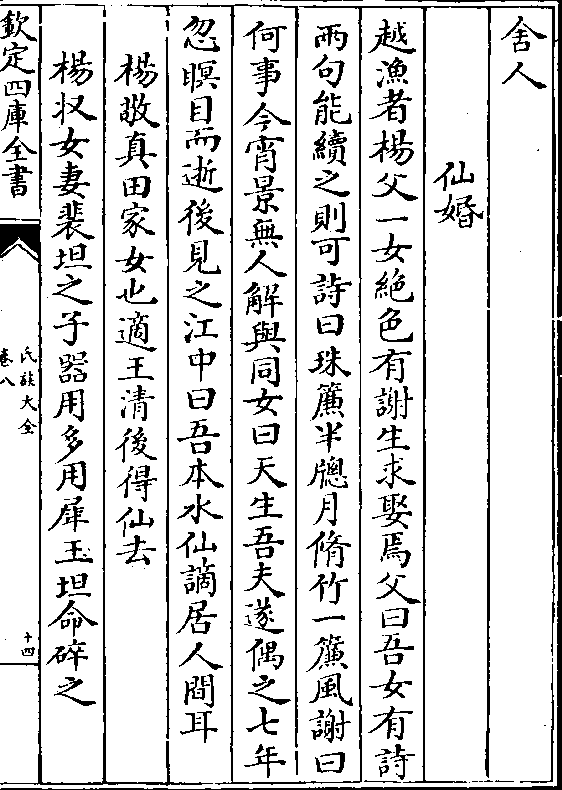 舍人
仙婚
越漁者楊父一女絶色有謝生求娶焉父曰吾女有詩
兩句能續之則可詩曰珠簾半牎月脩竹一簾風謝曰
何事今宵景無人解與同女曰天生吾夫遂偶之七年
忽瞑目而逝後見之江中曰吾本水仙謫居人間耳
楊敬真田家女也適王清後得仙去
楊収女妻裴坦之子器用多用犀玉坦命碎之
欽定四庫全書
氏族大全
卷八
十四